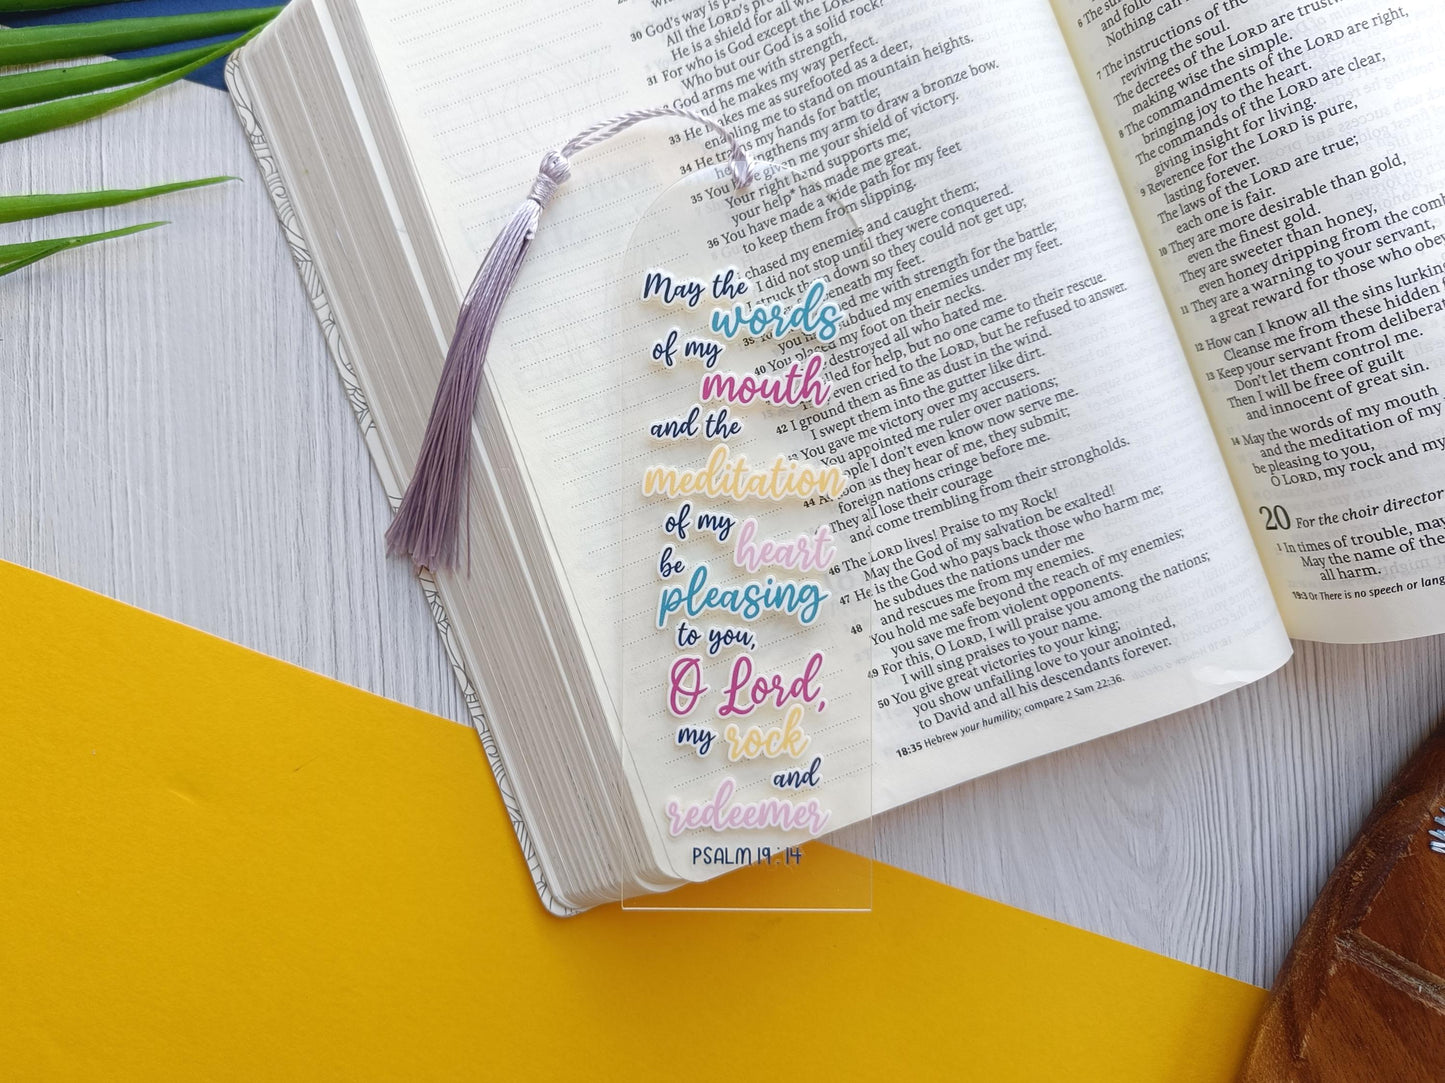 May the
words
of my
mouth
and the
meditation
of my
heart
be
pleasing
to you,
O Lord,
my rock
and
redeemer
PSALM 19:14
30 God's way is
All the LORD's
He is a shield for all
For who is God except the LORD
31 Who but our God is a solid rock?
God arms me with strength,
and he makes my way perfect.
33 He makes me as surefooted as a deer,
enabling me to stand on mountain heights.
34 He trains my hands for battle;
he strengthens my arm to draw a bronze bow.
35 You have given me your shield of victory.
Your right hand supports me;
your help* has made me great.
36 You have made a wide path for my feet
to keep them from slipping.
chased my enemies and caught them;
I did not stop until they were conquered.
I struck them down so they could not get up;
beneath my feet.
me with strength for the battle;
you subdued my enemies under my feet.
40 You placed my foot on their necks.
destroyed all who hated me.
for help, but no one came to their rescue.
even cried to the LORD, but he refused to answer.
42 I ground them as fine as dust in the wind.
I swept them into the gutter like dirt.
You gave me victory over my accusers.
You appointed me ruler over nations;
people I don't even know now serve me.
44 As soon as they hear of me, they submit;
foreign nations cringe before me.
They all lose their courage
and come trembling from their strongholds.
46 The LORD lives! Praise to my Rock!
May the God of my salvation be exalted!
47 He is the God who pays back those who harm me;
he subdues the nations under me
48 and rescues me from my enemies.
You hold me safe beyond the reach of my enemies;
you save me from violent opponents.
49 For this, O LORD, I will praise you among the nations;
I will sing praises to your name.
50 You give great victories to your king;
you show unfailing love to your anointed,
to David and all his descendants forever.
18:35 Hebrew your humility; compare 2 Sam 22:36.
6 The
and
Nothing can
7 The instructions of the
reviving the soul.
The decrees of the LORD are
making wise the simple.
8 The commandments of the LORD are right,
bringing joy to the heart.
The commands of the LORD are clear,
giving insight for living.
9 Reverence for the LORD is pure,
lasting forever.
The laws of the LORD are true;
each one is fair.
10 They are more desirable than gold,
even the finest gold.
They are sweeter than honey,
even honey dripping from the
11 They are a warning to your servant,
a great reward for those who
12 How can I know all the sins lurking
Cleanse me from these hidden
13 Keep your servant from
Don't let them control me.
Then I will be free of guilt
and innocent of great sin.
14 May the words of my mouth
and the meditation of my
be pleasing to you,
O LORD, my rock and my
20 For the choir
1 In times of trouble, may
May the name of the
all harm.
19:3 Or There is no speech or